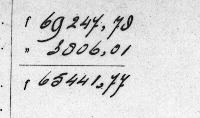 ( 69247,78
" 3806,01
( 65441,77